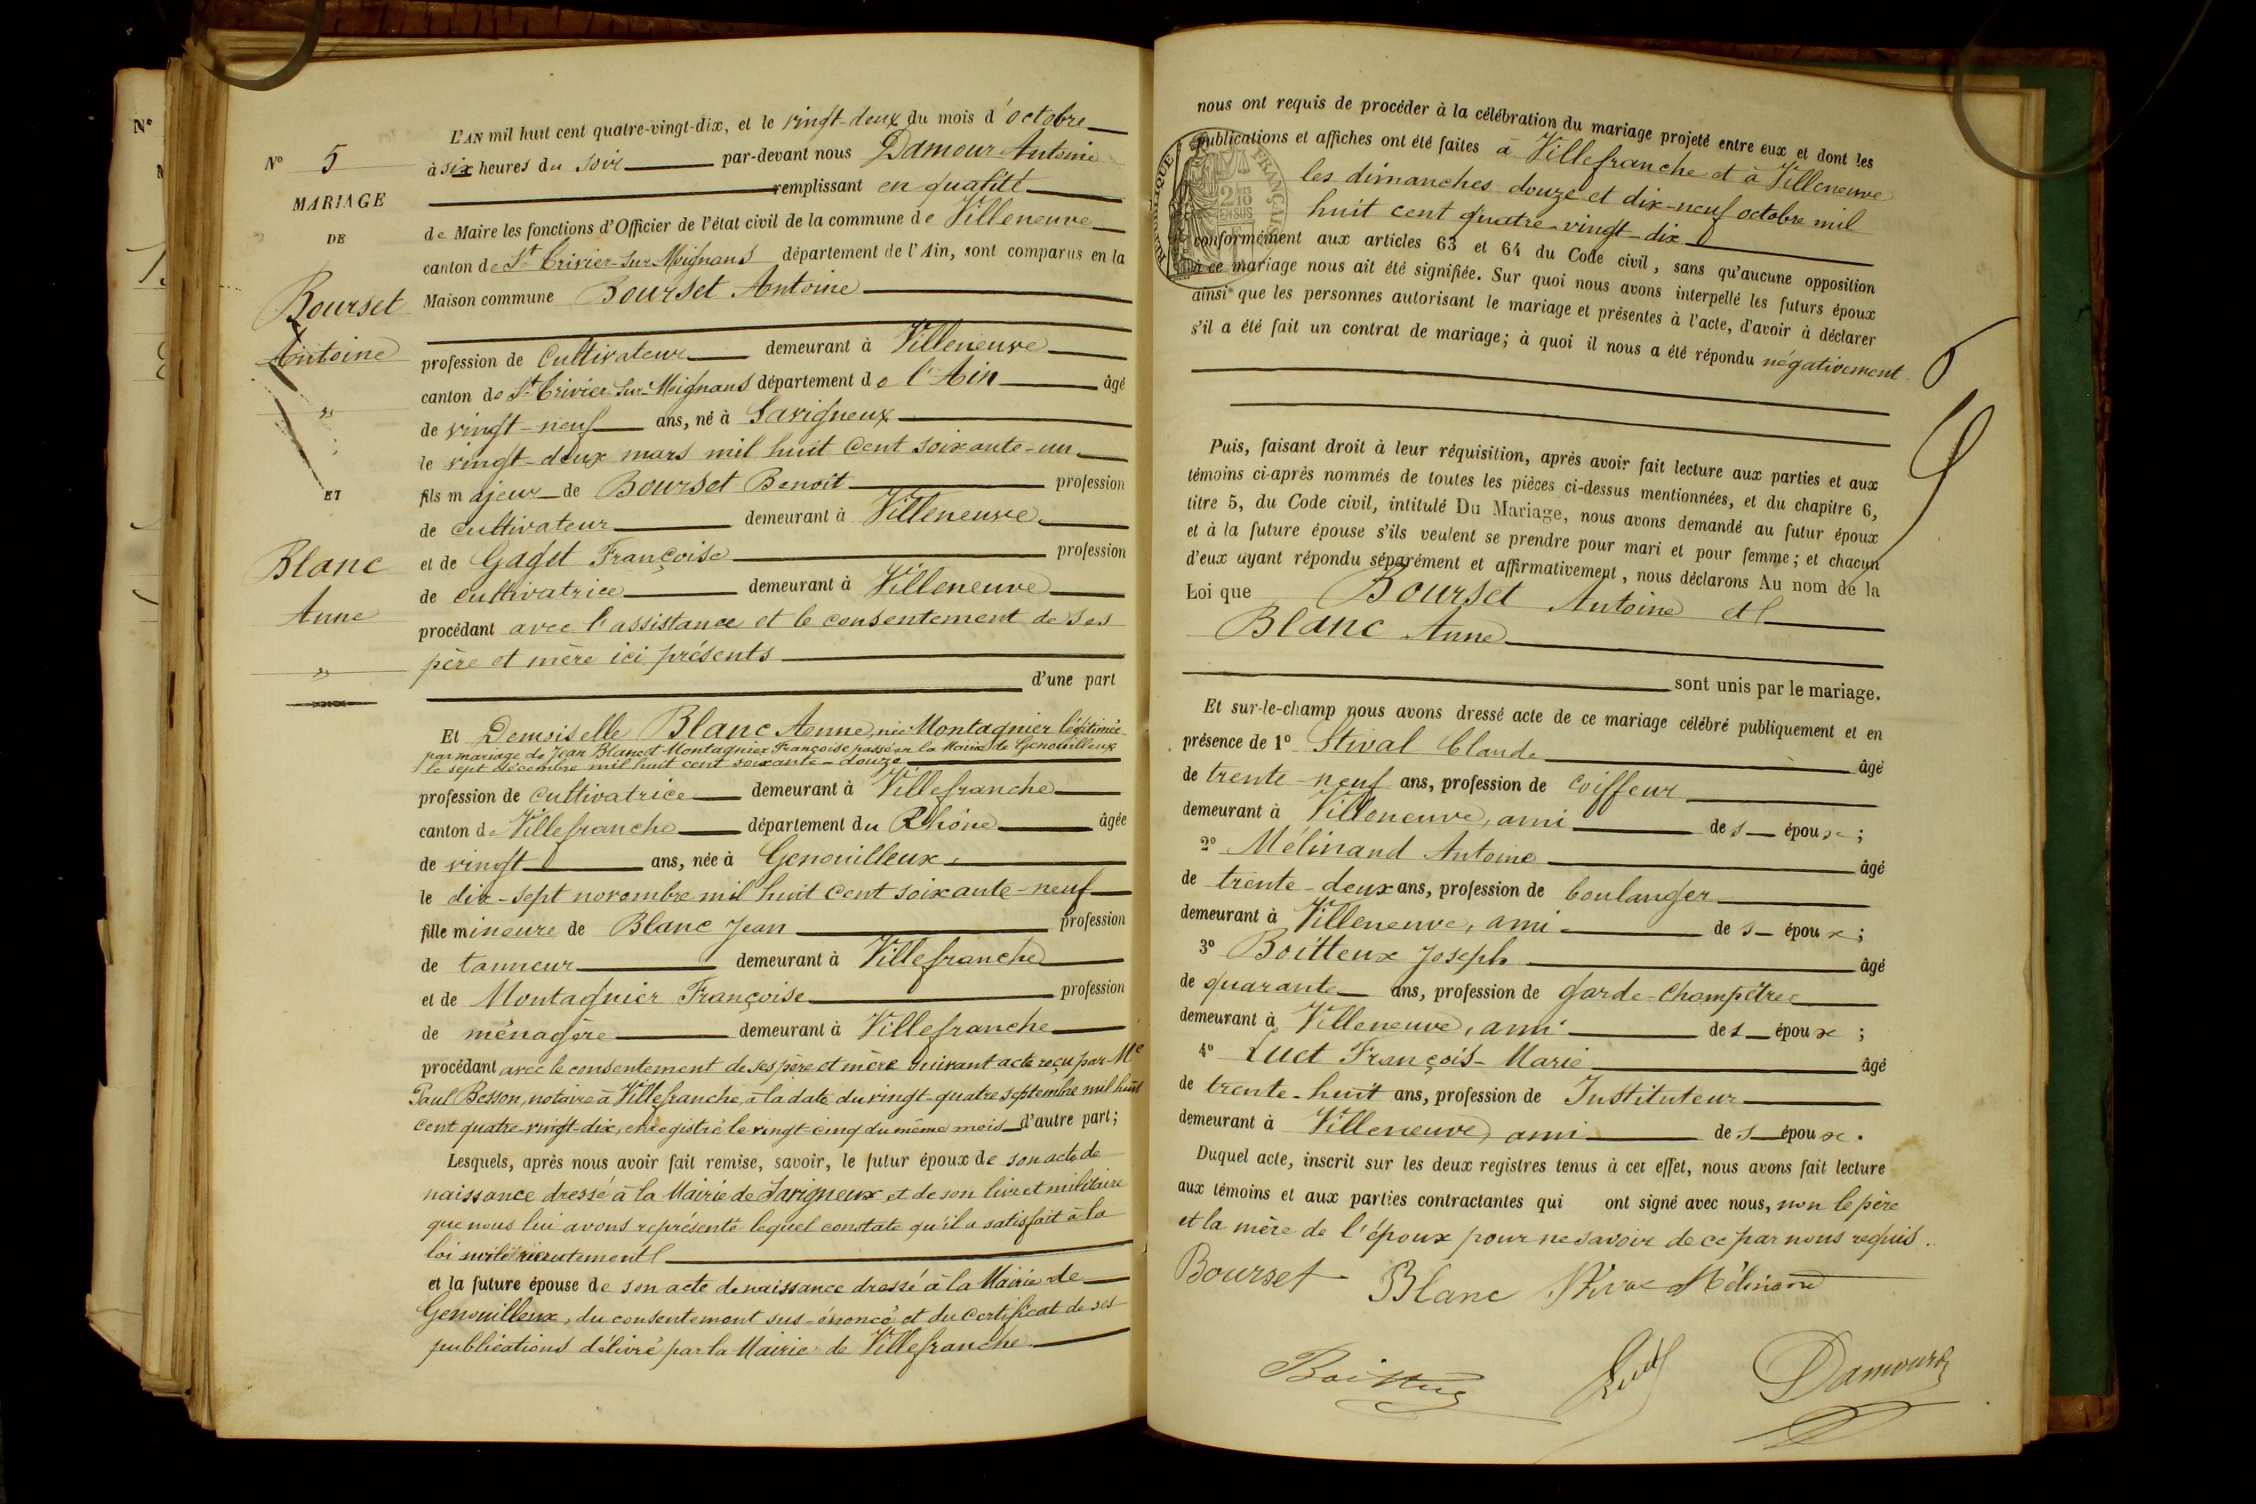 N° 5
MARIAGE
DE
Bourset
Antoine
"
ET
Blanc
Anne
"
L'AN mil huit cent quatre-vingt-dix, et le vingt-deux du mois d'octobre
à six heures du soir par-devant nous Damour Antoine
remplissant en qualité
de Maire les fonctions d'Officier de l'état civil de la commune de Villeneuve
canton de St Trivier-sur-Moignans département de l'Ain, sont comparus en la
Maison commune Bourset Antoine
profession de cultivateur demeurant à Villeneuve
canton de St Trivier-sur-Moignans département de l'Ain âgé
de vingt-neuf ans, né à Savigneux
le vingt-deux mars mil huit cent soixante-un
fils majeur de Bourset Benoît profession
de cultivateur demeurant à Villeneuve
et de Gaget Françoise profession
de cultivatrice demeurant à Villeneuve
procédant avec l'assistance et le consentement de ses
père et mère ici présents
d'une part
Et Demoiselle Blanc Anne, née Montagnier légitimée
par mariage de Jean Blanc et Montagnier Françoise passé en la Mairie de Genouilleux
le sept décembre mil huit cent soixante-douze
profession de cultivatrice demeurant à Villefranche
canton de Villefranche département du Rhône âgée
de vingt ans, née à Genouilleux,
le dix-sept novembre mil huit cent soixante-neuf
fille mineure de Blanc Jean profession
de tanneur demeurant à Villefranche
et de Montagnier Françoise profession
de ménagère demeurant à Villefranche
procédant avec le consentement de ses père et mère suivant acte reçu par Me
Paul Besson, notaire à Villefranche, à la date du vingt-quatre septembre mil huit
cent quatre-vingt-dix, enregistré le vingt-cinq du même mois d'autre part;
Lesquels, après nous avoir fait remise, savoir, le futur époux de son acte de
naissance dressé à la Mairie de Savigneux et de son livret militaire
que nous lui avons représenté lequel constate qu'il a satisfait à la
loi
et la future épouse de son acte de naissance dressé à la Mairie de
Genouilleux, du consentement sus-énoncé et du certificat de ses
publications délivré par la Mairie de Villefranche
nous ont requis de procéder à la célébration du mariage projeté entre eux et dont les
publications et affiches ont été faites à Villefranche et à Villeneuve
les dimanches douze et dix-neuf octobre mil
huit cent quatre-vingt-dix
conformément aux articles 63 et 64 du Code civil, sans qu'aucune opposition
à ce mariage nous ait été signifiée. Sur quoi nous avons interpellé les futurs époux
ainsi que les personnes autorisant le mariage et présentes à l'acte, d'avoir à déclarer
s'il a été fait un contrat de mariage; à quoi il nous a été répondu négativement
Puis, faisant droit à leur réquisition, après avoir fait lecture aux parties et aux
témoins ci-après nommés de toutes les pièces ci-dessus mentionnées, et du chapitre 6,
titre 5, du Code civil, intitulé Du Mariage, nous avons demandé au futur époux
et à la future épouse s'ils veulent se prendre pour mari et pour femme; et chacun
d'eux ayant répondu séparément et affirmativement, nous déclarons Au nom de la
Loi que Bourset Antoine et
Blanc Anne
sont unis par le mariage.
Et sur-le-champ nous avons dressé acte de ce mariage célébré publiquement et en
présence de 1° Stival Claude âgé
de trente-neuf ans, profession de coiffeur
demeurant à Villeneuve, ami des époux;
2° Mélinand Antoine âgé
de trente-deux ans, profession de boulanger
demeurant à Villeneuve, ami des époux;
3° Boitteux Joseph âgé
de quarante ans, profession de garde-champêtre
demeurant à Villeneuve, ami des époux;
4° Luct François-Marie âgé
de trente-huit ans, profession de Instituteur
demeurant à Villeneuve, ami des époux.
Duquel acte, inscrit sur les deux registres tenus à cet effet, nous avons fait lecture
aux témoins et aux parties contractantes qui ont signé avec nous, non le père
et la mère de l'époux pour ne savoir de ce par nous requis.
Bourset Blanc Stival Mélinand
Boitteux Damour